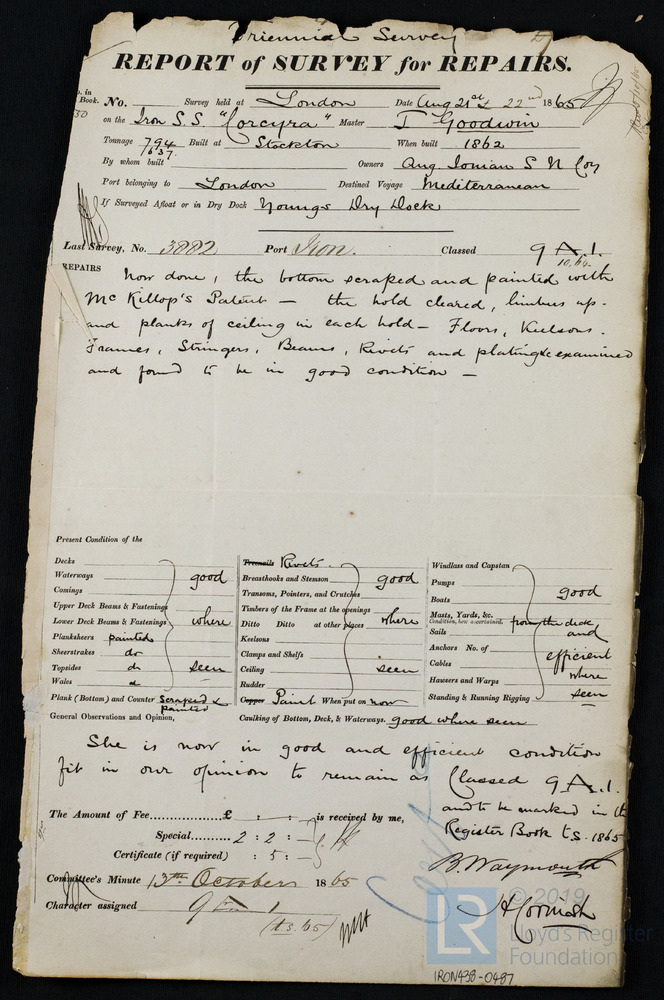 Triennial Survey
REPORT of SURVEY for REPAIRS.
in Book. No. Survey held at London Date Aug 21st & 22nd 1865
on the Iron S.S. "Corcyra" Master J Goodwin
Tonnage 794 Built at Stockton When built 1862
637.
By whom built Owners Ang. Ionian S N Coy
Port belonging to London Destined Voyage Mediterranean
If Surveyed Afloat or in Dry Dock Youngs Dry Dock
Last Survey, No. 3882 Port Iron. Classed 9 A.1.
10.64.
REPAIRS Now done, the bottom scraped and painted with
McKillop's Patent — the hold cleared, limbus up -
and planks of ceiling in each hold — Floors, Keelsons.
Frames, Stringers, Beams, Rivets and plating &c examined
and found to be in good condition —
Present Condition of the
Decks
Waterways good
Comings
Upper Deck Beams & Fastenings
Lower Deck Beams & Fastenings where
Planksheers painted
Sheerstrakes do
Topsides do seen
Wales do
Plank (Bottom) and Counter Scraped & painted
Treenails Rivets.
Breasthooks and Stemson good
Transoms, Pointers, and Crutches
Timbers of the Frame at the openings
Ditto Ditto at other places where
Keelsons
Clamps and Shelfs
Ceiling seen
Rudder
Copper Paint When put on now
Windlass and Capstan
Pumps
Boats good
Masts, Yards, &c.
Condition, how ascertained, from the deck
Sails and
Anchors No. of efficient
Cables
Hawsers and Warps where
Standing & Running Rigging seen
General Observations and Opinion, Caulking of Bottom, Deck, & Waterways. good where seen
She is now in good and efficient condition
fit in our opinion to remain as Classed 9 A.1.
and to be marked in the
Register Book t.s. 1865
The Amount of Fee £ : : is received by me,
Special 2 : 2 : —
Certificate (if required) : 5 : —
B. Waymouth
Committee's Minute 13th October 1865
H Cornish
Character assigned 9 A 1
(t.s. 65)
LR
© 2019
Lloyd's Register
Foundation
IRON438-0487